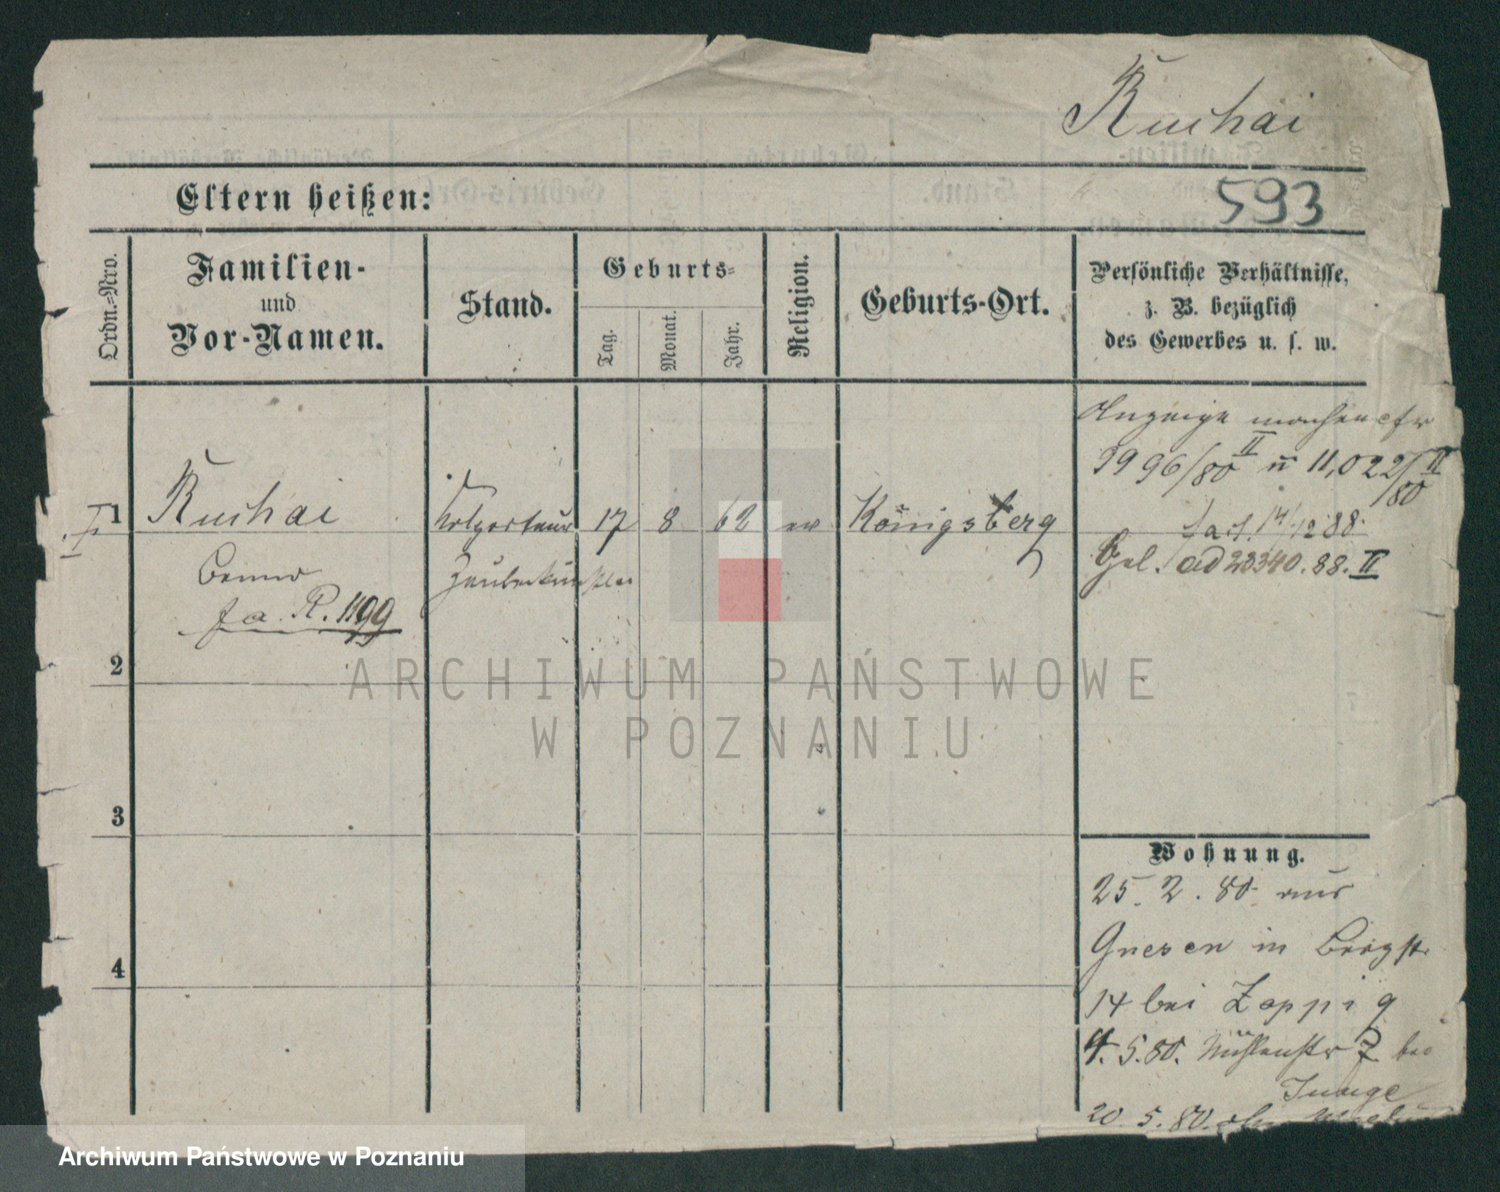 Ruchai
Eltern heißen:
593
Ordn.-Nro.
Familien-
und
Vor-Namen.
Stand.
Geburts-
Tag.
Monat.
Jahr.
Religion.
Geburts-Ort.
Persönliche Verhältnisse,
z. B. bezüglich
des Gewerbes u. s. w.
Anzeige machen cfr
9996/80 II u 11,022/80 II
1 Ruchai Kolporteur 17 8 62 ev Königsberg
Benno Zauberkünstler
fa. R. 1199
14/12 88.
Gel. ad 23340. 88. II
2
3
4
Wohnung.
25. 2. 80 aus
Gnesen in Bergstr.
14 bei Zoppig
4. 5. 80. Mühlenstr 7 bei
Junge
20. 5. 80.
ARCHIWUM PAŃSTWOWE
W POZNANIU
Archiwum Państwowe w Poznaniu